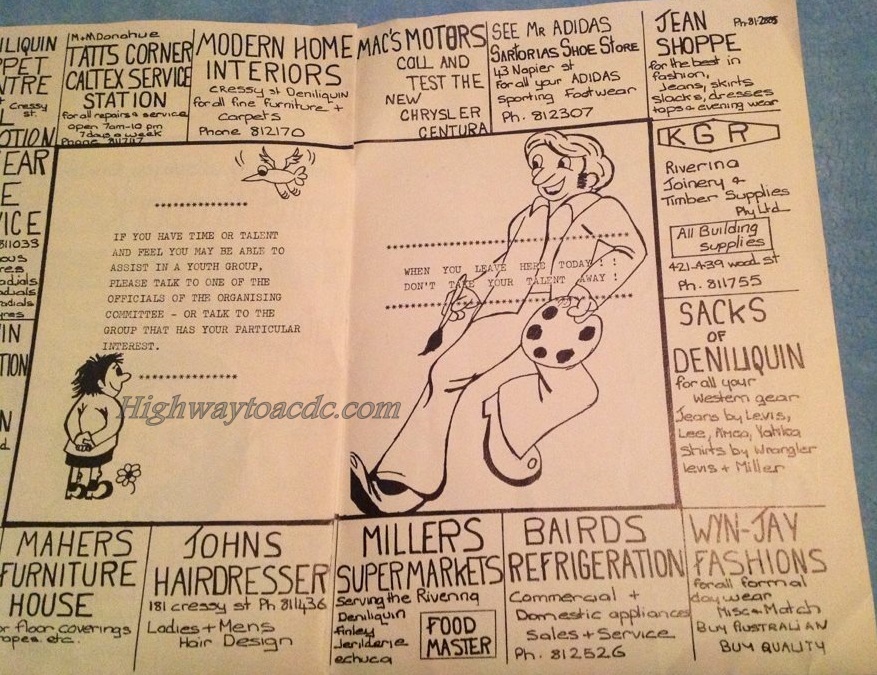 ILIQUIN
PPET
NTRE
Cressy
st.
OTION
EAR
E
ICE
811033
M+M Donahue
TATTS CORNER
CALTEX SERVICE
STATION
For all repairs & service
open 7am-10 pm
7 days a week
Phone 811717
MODERN HOME
INTERIORS
Cressy st Deniliquin
for all fine furniture +
carpets
Phone 812170
MAC'S MOTORS
CALL AND
TEST THE
NEW
CHRYSLER
CENTURA
SEE Mr ADIDAS
SARTORIAS SHOE STORE
43 Napier st
for all your ADIDAS
sporting Footwear
Ph. 812307
JEAN Ph-81-2005
SHOPPE
for the best in
fashion,
Jeans, skirts
slacks, dresses
tops & evening wear
KGR
Riverina
Joinery &
Timber Supplies
Pty Ltd
All Building
supplies
421-439 wood st
Ph. 811755
SACKS
OF
DENILIQUIN
for all your
Western gear
Jeans by Levis,
Lee, Amco,
Shirts by Wrangler
Levis + Miller
***************
IF YOU HAVE TIME OR TALENT
AND FEEL YOU MAY BE ABLE TO
ASSIST IN A YOUTH GROUP,
PLEASE TALK TO ONE OF THE
OFFICIALS OF THE ORGANISING
COMMITTEE - OR TALK TO THE
GROUP THAT HAS YOUR PARTICULAR
INTEREST.
***************
WHEN YOU LEAVE HERE TODAY ! !
DON'T TAKE YOUR TALENT AWAY !
Highwaytoacdc.com
MAHERS
FURNITURE
HOUSE
or floor coverings
drapes. etc.
JOHNS
HAIRDRESSER
181 cressy st Ph 811436
Ladies + Mens
Hair Design
MILLERS
SUPERMARKETS
Serving the Riverina
Deniliquin
finley
Jerilderie
echuca
FOOD
MASTER
BAIRDS
REFRIGERATION
Commercial +
Domestic appliances
Sales + Service
Ph. 812526
WYN-JAY
FASHIONS
for all formal
day wear
Misc + Match
BUY AUSTRALIAN
BUY QUALITY